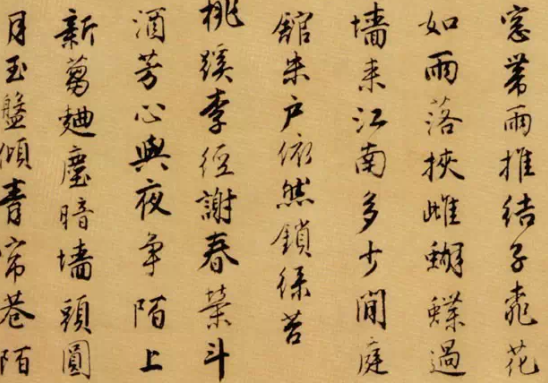 窓帶雨推結子桃花
如雨落挾雌蝴蝶過
墻来江南多少閒庭
館朱户依然鎖綠苔
桃蹊李徑謝春榮斗
酒芳心與夜爭陌上
新蒭麯塵暗墻頭圓
月玉盤傾青帘巷陌